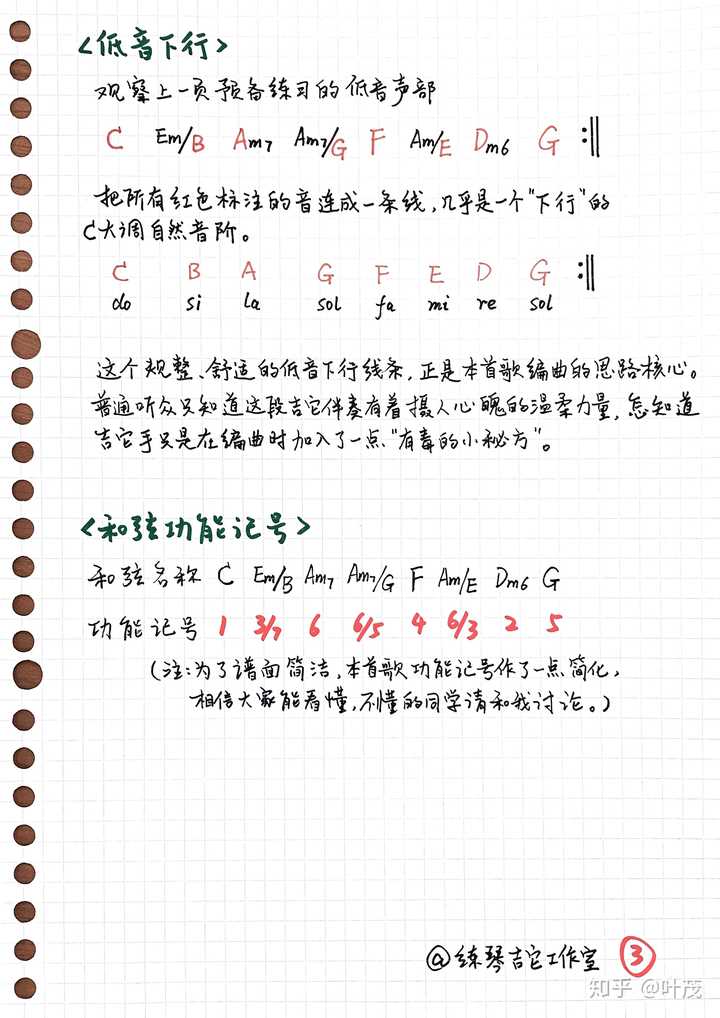 <低音下行>
观察上一页预备练习的低音声部
C Em/B Am7 Am7/G F Am/E Dm6 G :||
把所有红色标注的音连成一条线,几乎是一个"下行"的
C大调自然音阶。
C B A G F E D G :||
do si la sol fa mi re sol
这个规整、舒适的低音下行线条,正是本首歌编曲的思路核心。
普通听众只知道这段吉它伴奏有着摄人心魄的温柔力量,怎知道
吉它手只是在编曲时加入了一点"有毒的小秘方"。
<和弦功能记号>
和弦名称 C Em/B Am7 Am7/G F Am/E Dm6 G
功能记号 1 3/7 6 6/5 4 6/3 2 5
(注:为了谱面简洁,本首歌功能记号作了一点简化,
相信大家能看懂,不懂的同学请和我讨论。)
@练琴吉它工作室 3
知乎 @叶茂